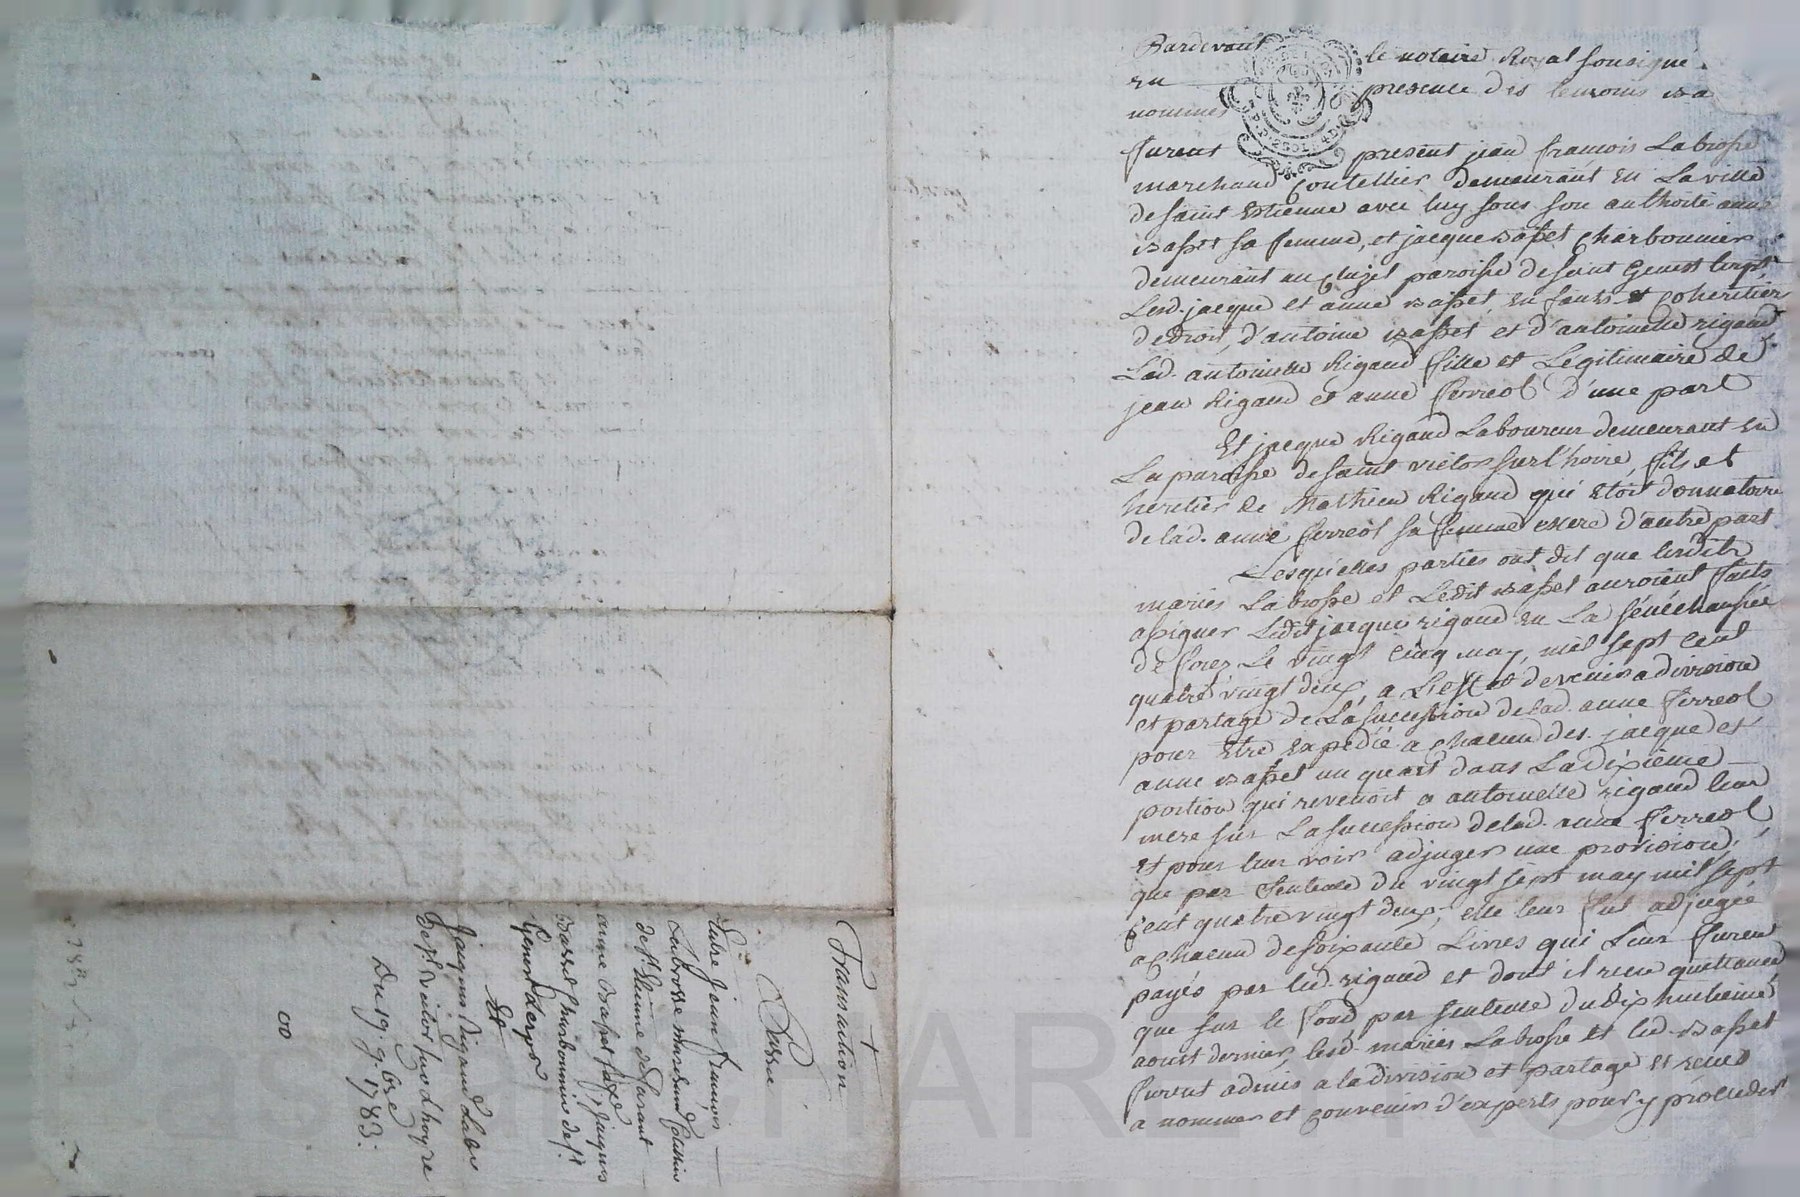 Pardevant le notaire Royal sousigne
en presence des temoins bas
nommes
furent present jean francois Labrosse
marchand Coutellier demeurant en La ville
de saint Etienne avec luy sous son authorité anne
basset sa femme, et jacque basset charbonnier
demeurant au cluzel paroisse de saint Genest lerpt
Lesd. jacque et anne basset enfants et coheritiers
de droit d'antoine basset et d'antoinette rigaud
Lad. antoinette Rigaud fille et Legitimaire de
jean Rigaud et anne ferreol d'une part
Et jacque Rigaud Laboureur demeurant en
La paroisse de saint victor sur l'hoire, fils et
heritier de Mathieu Rigaud qui etoit donnatoire
de lad. anne ferreol sa femme mere d'autre part
Lesquelles parties ont dit que lesdits
mariés Labrosse et Ledit basset auroient faits
assigner Ledit jacque rigaud en La sénéchaussée
de forez Le vingt cinq may, mil sept cent
quatre vingt deux, a L'effet de venir a division
et partage de La succession de lad. anne ferreol
pour Etre expedié a chacun des jacque et
anne basset un quart dans La dixième
portion qui revenoit a antoinette rigaud leur
mere sur La succession de lad. anne ferreol
et pour leur voir adjuger une provision,
que par sentence du vingt sept may mil sept
cent quatre vingt deux, elle leur fut adjugée
a chacun de soixante Livres qui Leur furent
payés par led. rigaud et dont il retira quittance
que sur le fond par sentence du dix huitieme
aoust dernier, lesd. mariés Labrosse et led. basset
furent admis a la division et partage et renvoyés
a nommer et convenir d'experts pour y proceder
Transaction
Passée
Entre Jean françois
Labrosse marchand Coutellier
de st. Etienne et
anne Basset sa fe, Jacques
Basset Charbonnier de st.
Genest Lerpt
Et
Jacques Rigaud Labr
de st. Victor sur Lhoyre
Du 19. 9bre 1783.